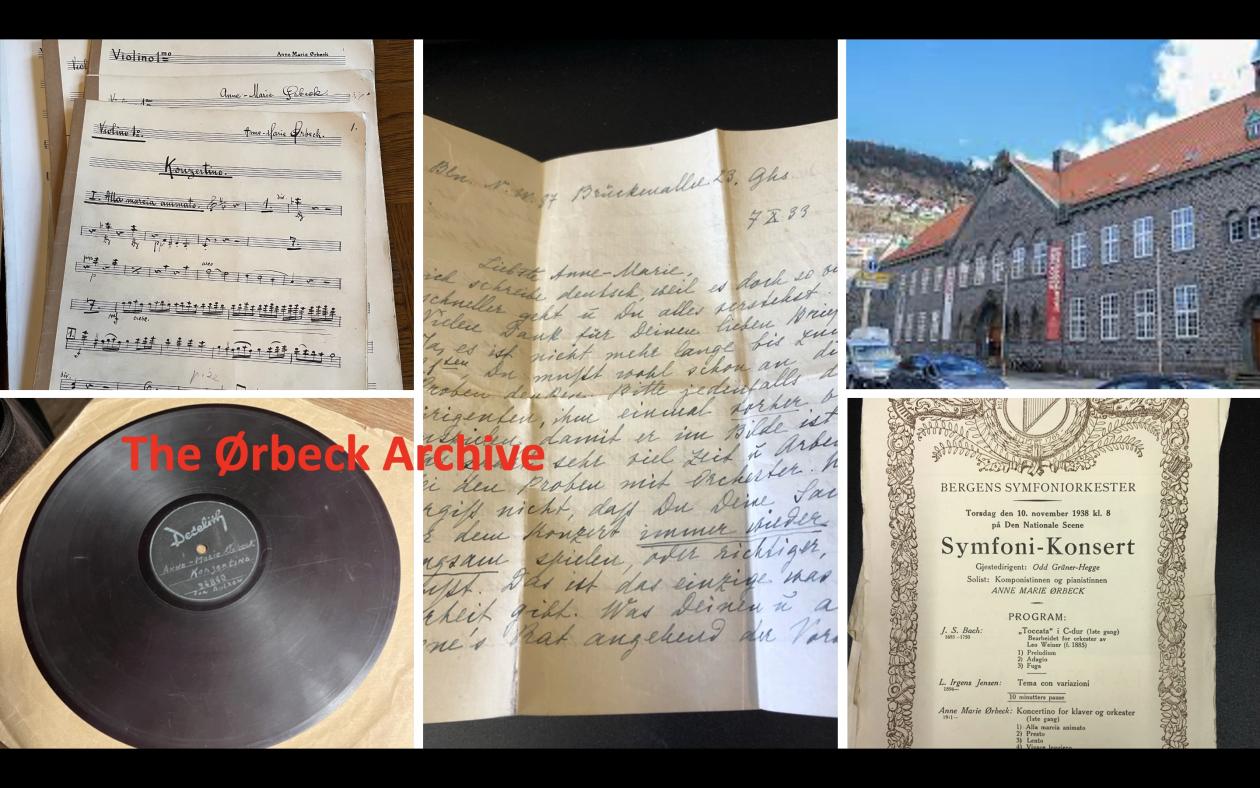 Violino 1mo
Anne Marie Ørbeck
Anne-Marie Ørbeck
Violino 1o.
Anne-Marie Ørbeck.
1.
Konzertino.
I. Alla marcia animato.
The Ørbeck Archive
Anne-Marie Ørbeck
Konzertino
Bln. N.W. 87 Brückenallee 23. Ghs.
7 X 33
Liebste Anne-Marie,
ich schreibe deutsch, weil es doch so
schneller geht u Du alles verstehst.
Vielen Dank für Deinen lieben Brief
es ist nicht mehr lange bis zum
Du mußt wohl schon an di
Proben denken. Bitte jedenfalls d
irigenten, ihm einmal vorher
damit er im Bilde ist
sehr viel Zeit u Arbei
ei den Proben mit Orchester.
rgiß nicht, daß Du Deine
dem Konzert immer wieder
ngsam spielen, oder richtiger,
ußt. Das ist das einzige was
rheit gibt. Was Deinen u
ne's Rat angehend der
BERGENS SYMFONIORKESTER
Torsdag den 10. november 1938 kl. 8
på Den Nationale Scene
Symfoni-Konsert
Gjestedirigent: Odd Grüner-Hegge
Solist: Komponistinnen og pianistinnen
ANNE MARIE ØRBECK
PROGRAM:
J. S. Bach: „Toccata" i C-dur (1ste gang)
1685—1750 Bearbeidet for orkester av
Leo Weiner (f. 1885)
1) Preludium
2) Adagio
3) Fuga
L. Irgens Jensen: Tema con variazioni
1894—
10 minutters pause
Anne Marie Ørbeck: Koncertino for klaver og orkester
1911— (1ste gang)
1) Alla marcia animato
2) Presto
3) Lento
4) Vivace leggiero